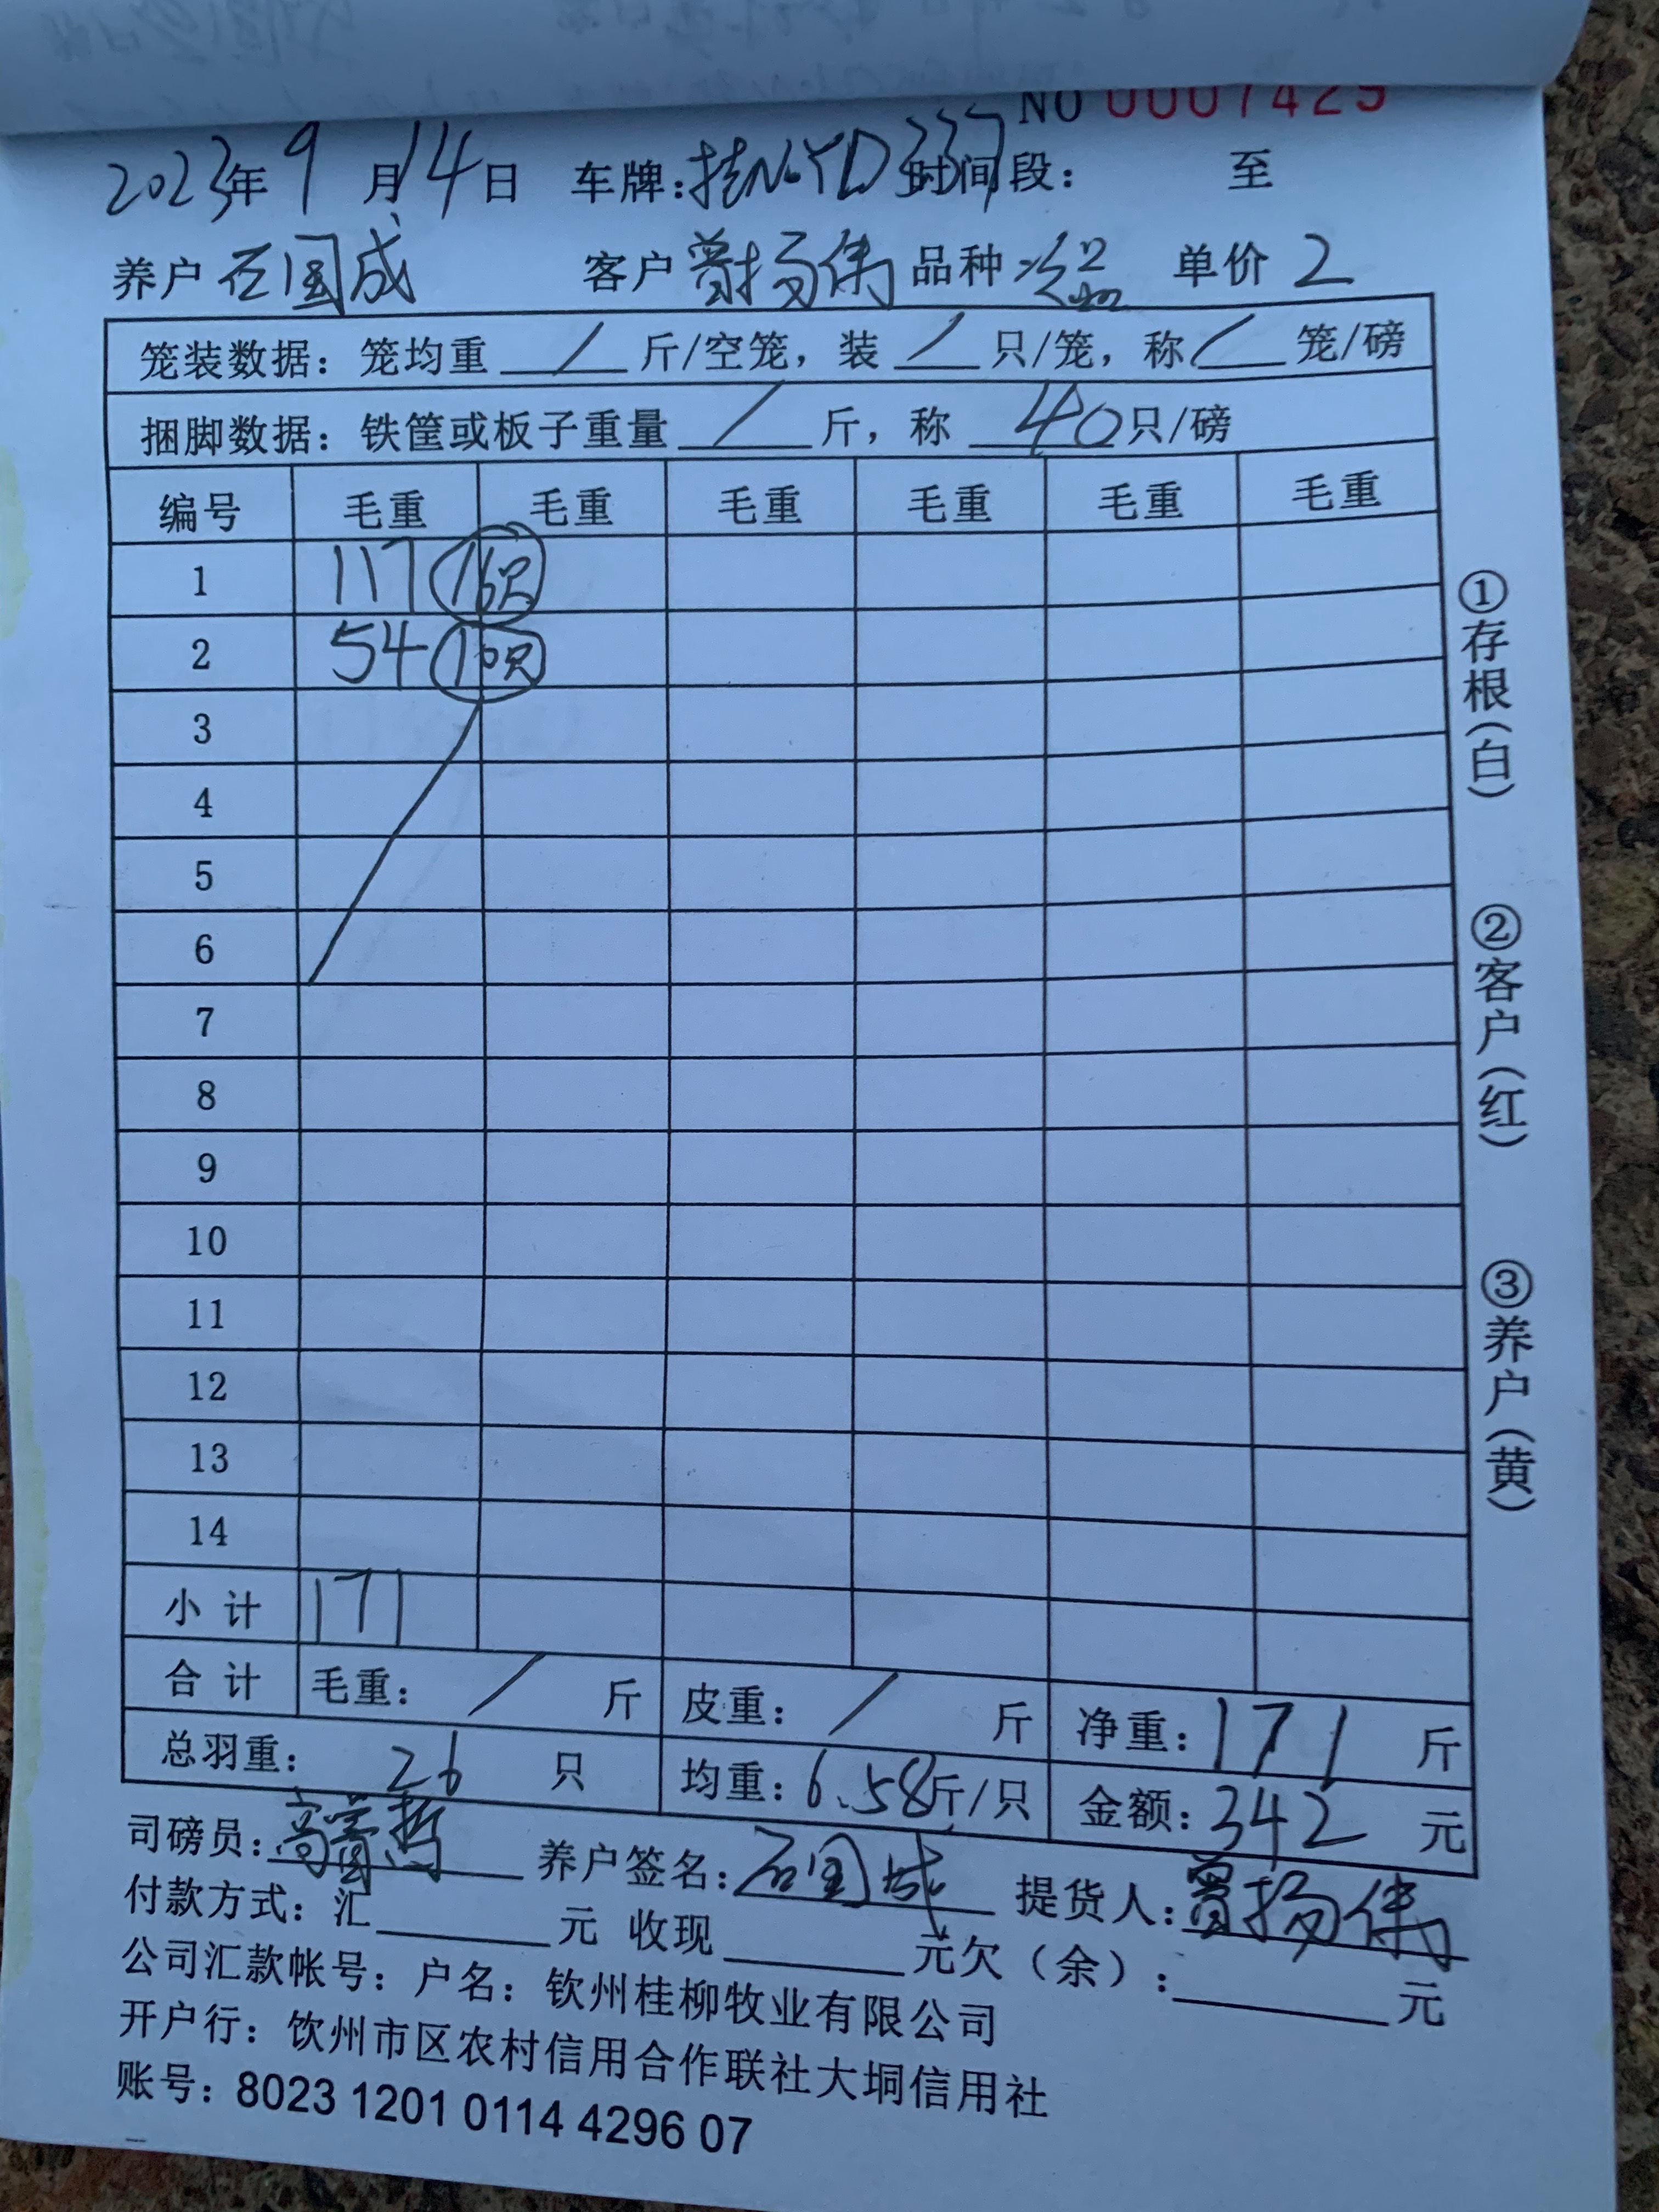 NO 0007429
2023年 9 月 14 日 车牌:桂N·YD337 时间段: 至
养户 石国成 客户 曾扬伟 品种 次 单价 2
笼装数据: 笼均重 / 斤/空笼, 装 / 只/笼, 称 / 笼/磅
捆脚数据: 铁筐或板子重量 / 斤, 称 40 只/磅
编号 毛重 毛重 毛重 毛重 毛重 毛重
1 117 16只
2 54 10只
3
4
5
6
7
8
9
10
11
12
13
14
小计 171
合计 毛重: / 斤 皮重: / 斤 净重: 171 斤
总羽重: 26 只 均重: 6.58 斤/只 金额: 342 元
司磅员: 养户签名: 石国成 提货人: 曾扬伟
付款方式: 汇 元 收现 元 欠(余): 元
公司汇款帐号: 户名: 钦州桂柳牧业有限公司
开户行: 饮州市区农村信用合作联社大垌信用社
账号: 8023 1201 0114 4296 07
①存根(白)
②客户(红)
③养户(黄)